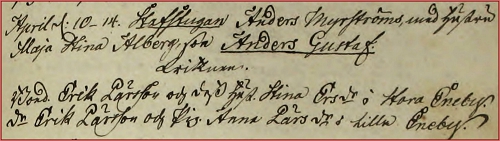 April d: 10-14. Stafstugan Anders Myrströms, med Hustru
Maja Stina Alberg, son Anders Gustaf.
Wittnen.
Bond. Erik Larsson och dess Hust. Stina Ersdr i Stora Eneby.
Dr. Erik Larsson och Pig. Anna Larsdr i Lilla Eneby.